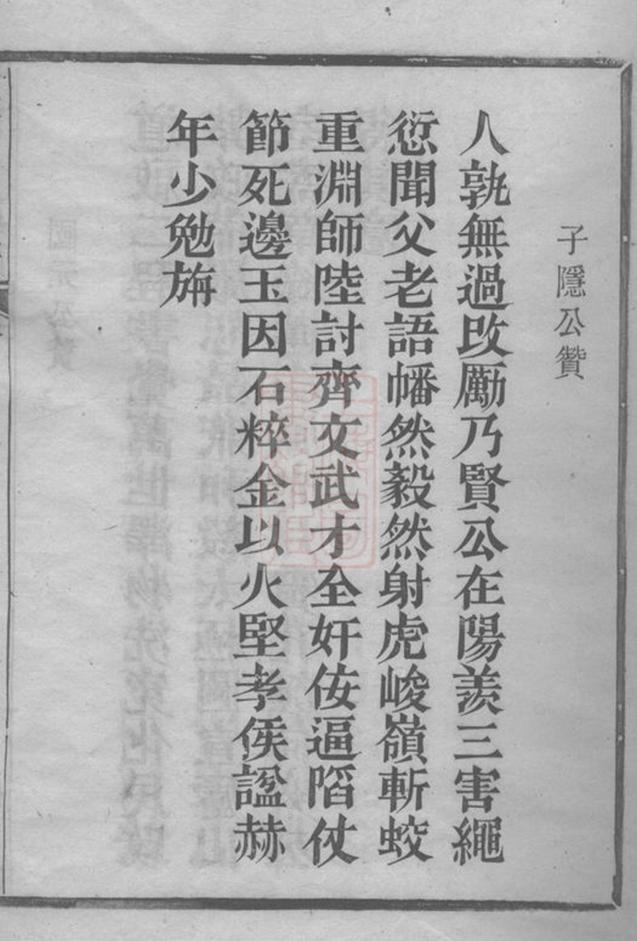 子隱公贊
人孰無過改勵乃賢公在陽羨三害繩
愆聞父老語幡然毅然射虎峻嶺斬蛟
重淵師陸討齊文武才全奸侫逼陷仗
節死邊玉因石粹金以火堅孝侯諡赫
年少勉旃